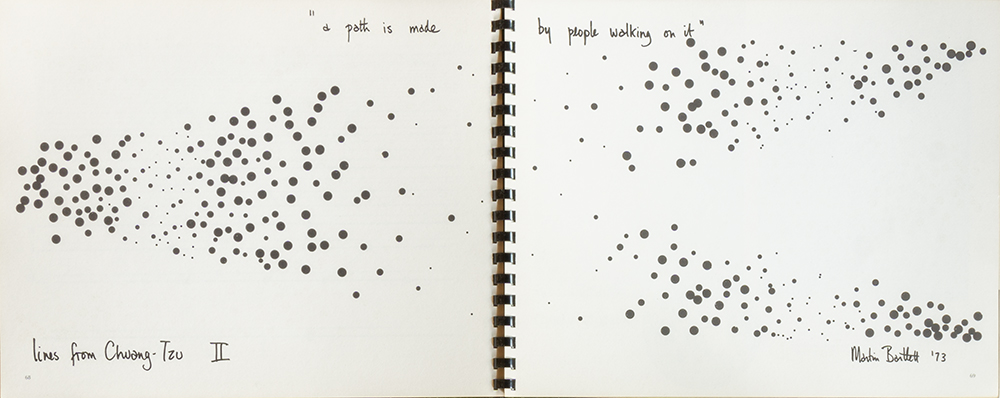 "a path is made
by people walking on it"
lines from Chuang-Tzu II
Martin Bartlett '73
68
69